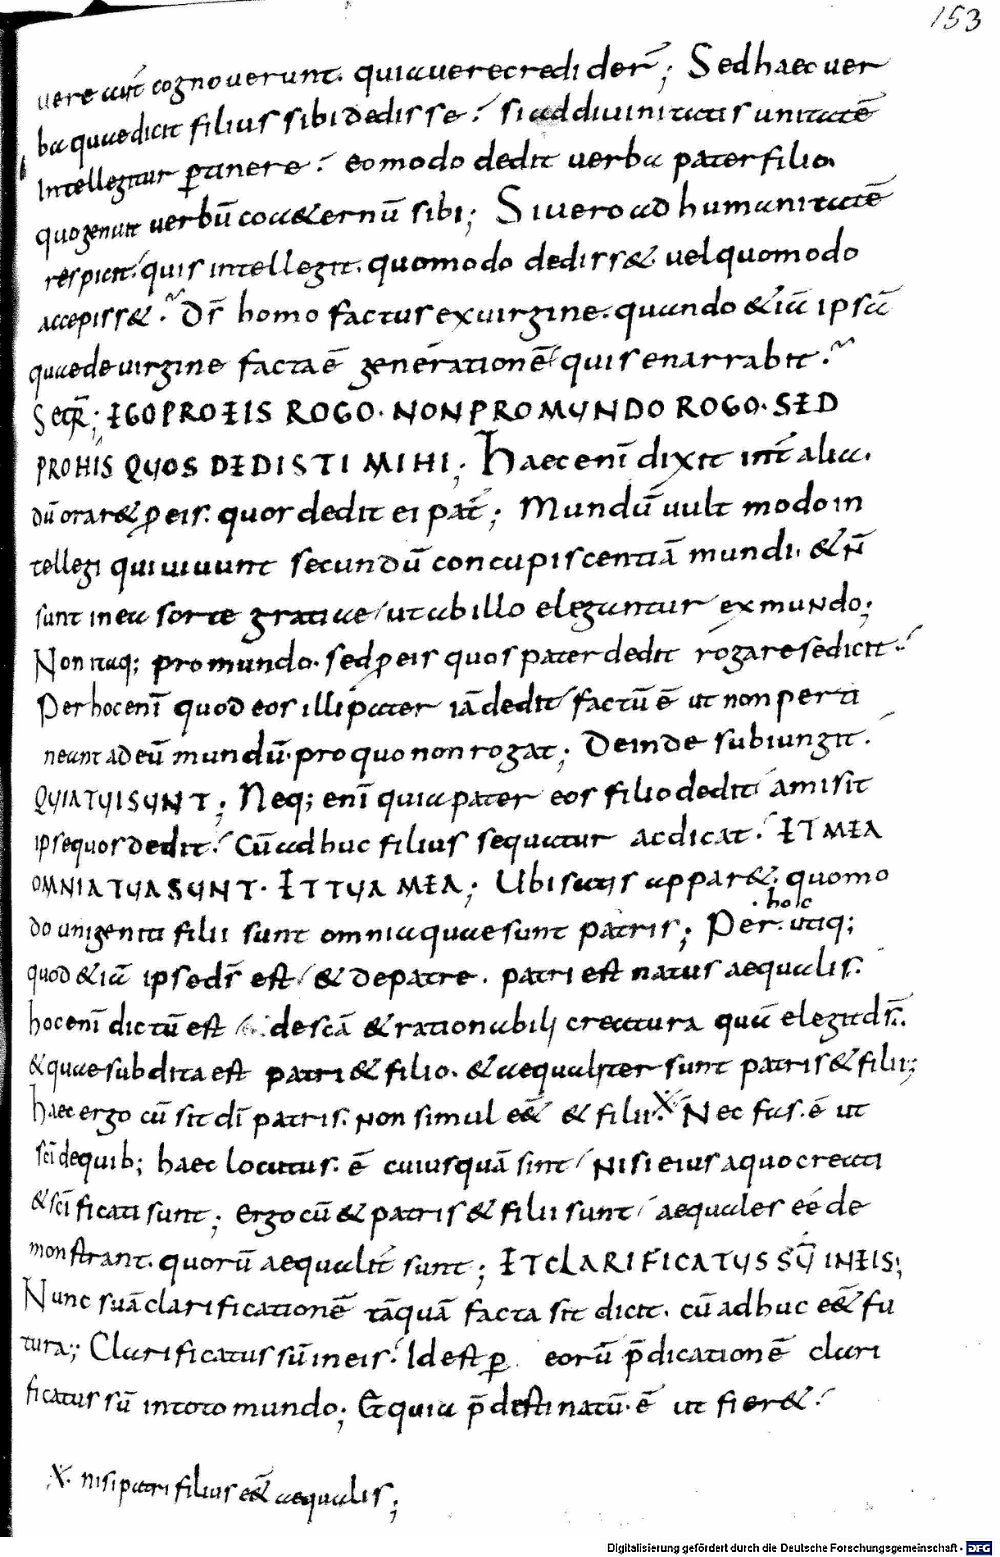 153
uere aut̄ cognouerunt. quia uere credider̄; Sed haec uer
ba quae dicit filius sibi dedisse? si ad diuinitatis unitatē
Intellegitur ꝑtinere? eo modo dedit uerba pater filio
quo genuit uerbū coa&ernū sibi; Si uero ad humanitatē
respicit. quis intellegit. quomodo dediss& uel quomodo
accepiss&? Dr̄ homo factus ex uirgine. quando &iā ipsā
quae de uirgine facta ē generationē quis enarrabit?
Seqr̄; EGO PRO EIS ROGO. NON PRO MUNDO ROGO. SED
PRO HIS QUOS DEDISTI MIHI; Haec enī dixit int̄ alia.
dū orar& ꝓ eis. quos dedit ei pat̄; Mundū uult modo in
tellegi qui uiuunt secundū concupiscentiā mundi. & n̄
sunt in ea sorte gratiae / ut ab illo elegantur ex mundo;
Non itaq; pro mundo. sed ꝓ eis quos pater dedit rogare se dicit.
Per hoc enī quod eos illi pater iā dedit / factū ē ut non perti
neant ad eū mundū. pro quo non rogat; Deinde subiungit.
QUIA TUI SUNT; Neq; enī quia pater eos filio dedit amisit
ipse quos dedit. Cū adhuc filius sequatur ac dicat. ET MEA
OMNIA TUA SUNT. ET TUA MEA; Ubi satis appar&. quomo
do unigeniti filii sunt omnia quae sunt patris; Per hoc utiq;
quod &iā ipse dr̄ est / & de patre. patri est natus aequalis.
hoc enī dictū est / de scā & rationabili creatura quā elegit dr̄.
& quae subdita est patri & filio. & aequaliter sunt patris & filii;
haec ergo cū sit dī patris. non simul e&̄ & filii. X Nec fas. ē ut
scī de quib; haec locutus. ē cuiusquā sint / nisi eius a quo creati
& scīficati sunt; ergo cū & patris & filii sunt / aequales eē de
monstrant. quorū aequalit̄ sunt; ET CLARIFICATUS SŪ IN EIS;
Nunc suā clarificationē tāquā facta sit dicit. cū adhuc e&̄ fu
tura; Clarificatus sū in eis. Id est ꝑ eorū p̄dicationē clari
ficatus sū in toto mundo; Et quia p̄destinatū. ē ut fier&.
X. nisi patri filius e&̄ aequalis;
Digitalisierung gefördert durch die Deutsche Forschungsgemeinschaft - DFG